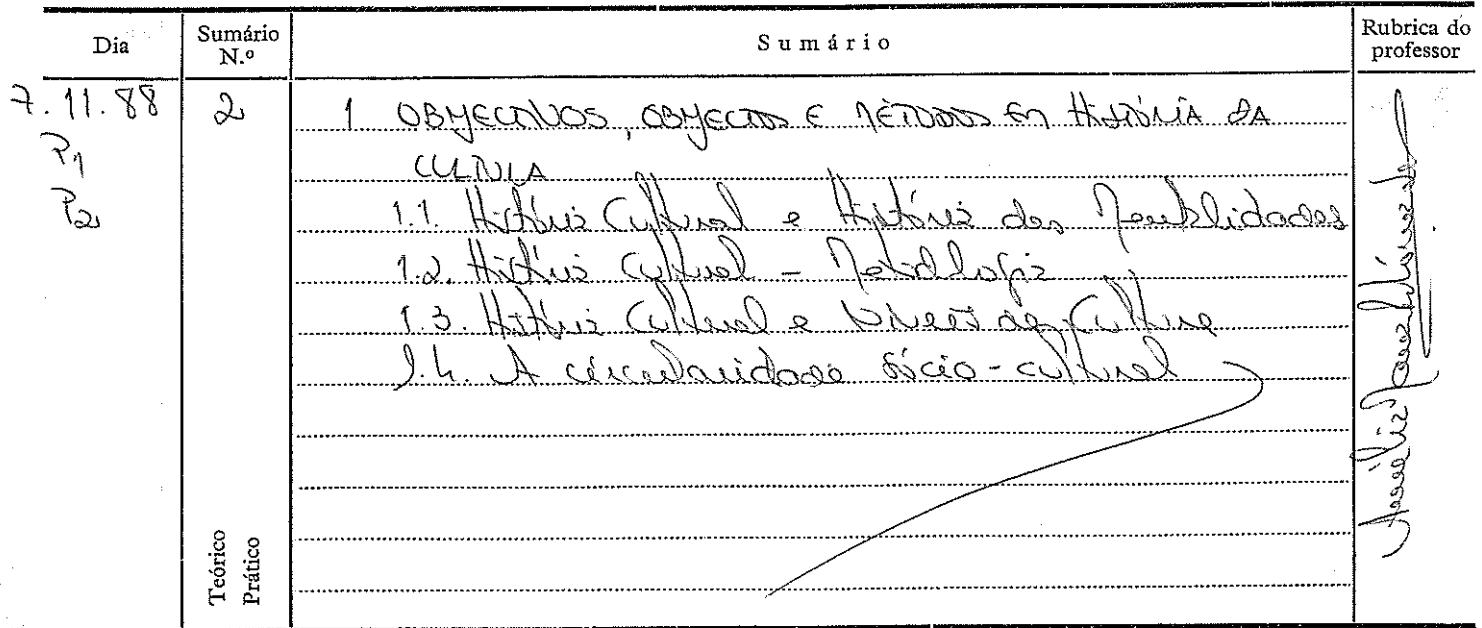 Dia
Sumário N.º
Sumário
Rubrica do professor
7.11.88
2
P1
P2
1 OBJECTIVOS, OBJECTOS E MÉTODOS EM HISTÓRIA DA
CULTURA
1.1. História Cultural e História das Mentalidades
1.2. História Cultural - Metodologia
1.3. História Cultural e Níveis de Cultura
1.4. A circularidade sócio-cultural
Teórico
Prático